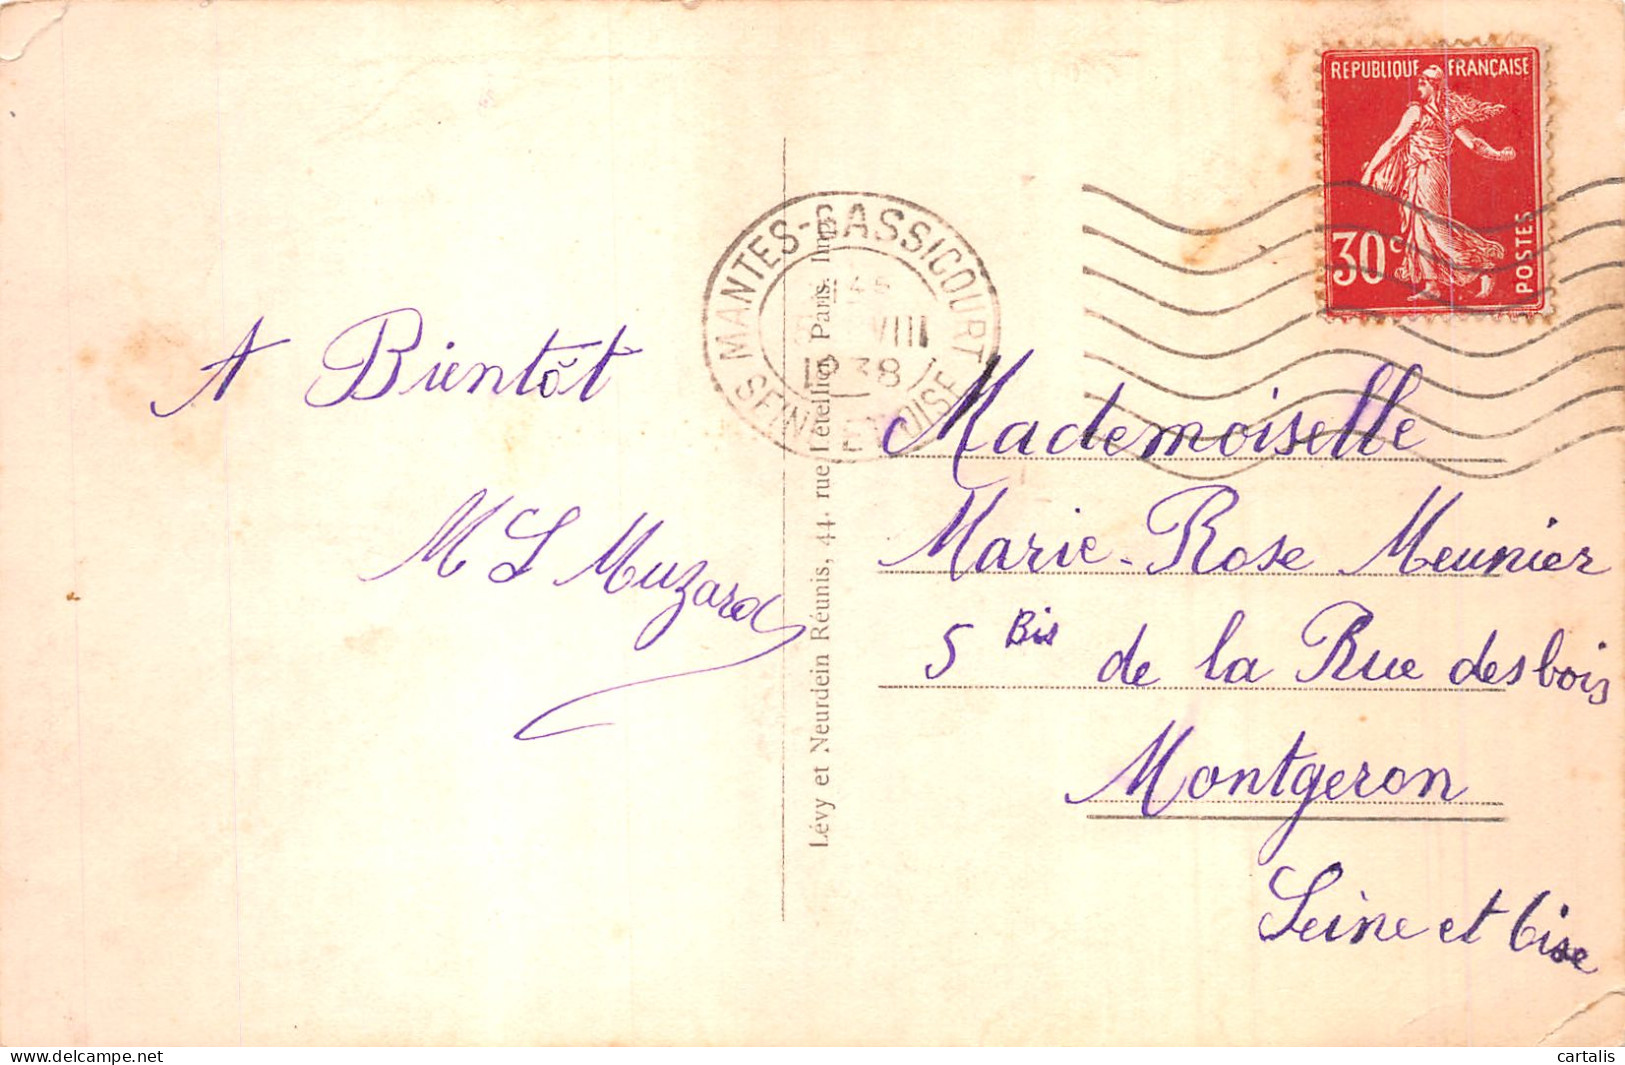 REPUBLIQUE FRANÇAISE
30c
POSTES
MANTES-GASSICOURT
VIII
1938
SEINE ET OISE
A Bientôt
M L Muzard
Lévy et Neurdein Réunis, 44. rue Letellier, Paris. Imp.
Mademoiselle
Marie-Rose Meunier
5 Bis de la Rue des bois
Montgeron
Seine et Oise
cartalis